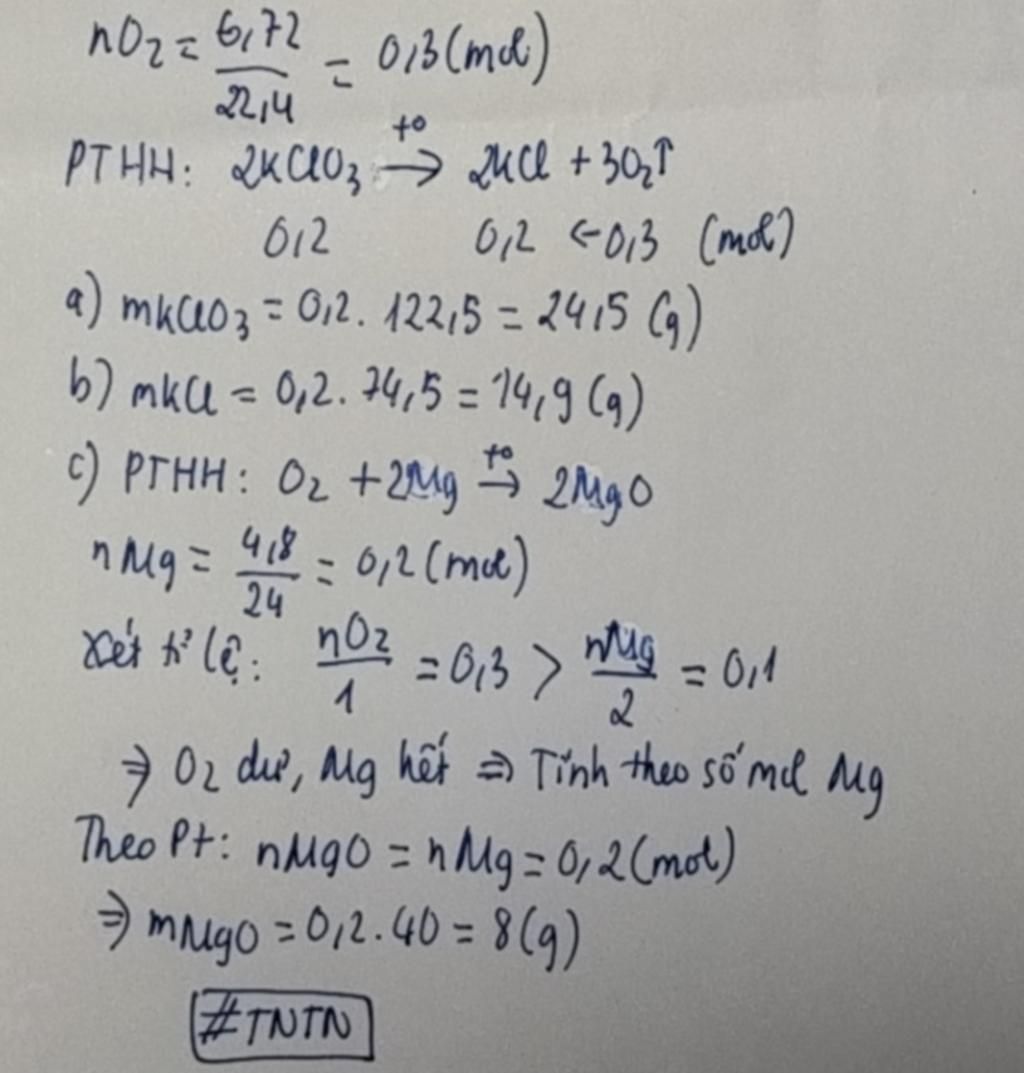 nO₂ = 6,72/22,4 = 0,3 (mol)
PTHH: 2KClO₃ —t°→ 2KCl + 3O₂↑
0,2 0,2 ← 0,3 (mol)
a) mKClO₃ = 0,2 . 122,5 = 24,5 (g)
b) mKCl = 0,2 . 74,5 = 14,9 (g)
c) PTHH: O₂ + 2Mg —t°→ 2MgO
nMg = 4,8/24 = 0,2 (mol)
Xét tỉ lệ: nO₂/1 = 0,3 > nMg/2 = 0,1
⇒ O₂ dư, Mg hết ⇒ Tính theo số mol Mg
Theo Pt: nMgO = nMg = 0,2 (mol)
⇒ mMgO = 0,2 . 40 = 8 (g)
#TNTN